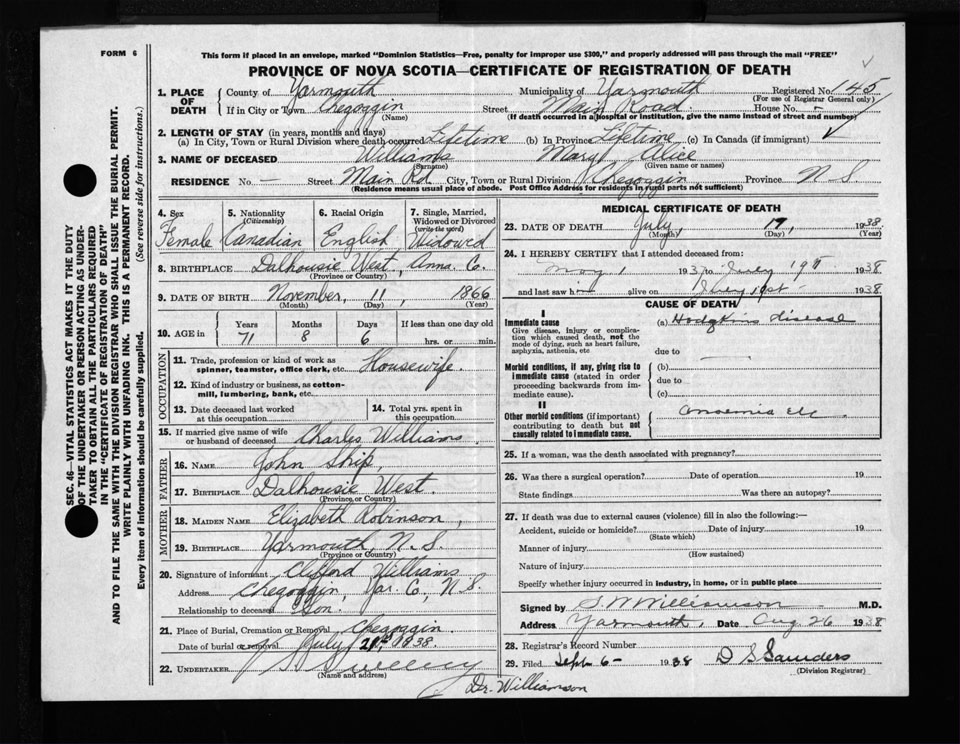 FORM 6
This form if placed in an envelope, marked "Dominion Statistics—Free, penalty for improper use $300," and properly addressed will pass through the mail "FREE"
PROVINCE OF NOVA SCOTIA—CERTIFICATE OF REGISTRATION OF DEATH
SEC. 46—VITAL STATISTICS ACT MAKES IT THE DUTY
OF THE UNDERTAKER OR PERSON ACTING AS UNDER-
TAKER TO OBTAIN ALL THE PARTICULARS REQUIRED
IN THE "CERTIFICATE OF REGISTRATION OF DEATH"
AND TO FILE THE SAME WITH THE DIVISION REGISTRAR WHO SHALL ISSUE THE BURIAL PERMIT.
WRITE PLAINLY WITH UNFADING INK. THIS IS A PERMANENT RECORD.
Every item of information should be carefully supplied. (See reverse side for instructions.)
1. PLACE OF DEATH County of Yarmouth Municipality of Yarmouth Registered No. 145
(For use of Registrar General only)
If in City or Town Chegoggin Street Main Road House No. -
(Name) (If death occurred in a hospital or institution, give the name instead of street and number)
2. LENGTH OF STAY (in years, months and days)
(a) In City, Town or Rural Division where death occurred Lifetime (b) In Province Lifetime (c) In Canada (if immigrant)
3. NAME OF DECEASED Williams Mary Alice
(Surname) (Given name or names)
RESIDENCE No. — Street Main Rd City, Town or Rural Division Chegoggin Province N.S.
(Residence means usual place of abode. Post Office Address for residents in rural parts not sufficient)
4. Sex 5. Nationality (Citizenship) 6. Racial Origin 7. Single, Married, Widowed or Divorced (write the word)
Female Canadian English Widowed
8. BIRTHPLACE Dalhousie West, Anna. Co.
(Province or Country)
9. DATE OF BIRTH November, 11, 1866
(Month) (Day) (Year)
10. AGE in Years Months Days If less than one day old
71 8 6 hrs. or min.
OCCUPATION
11. Trade, profession or kind of work as spinner, teamster, office clerk, etc. Housewife.
12. Kind of industry or business, as cotton-mill, lumbering, bank, etc.
13. Date deceased last worked at this occupation 14. Total yrs. spent in this occupation
15. If married give name of wife or husband of deceased Charles Williams.
FATHER
16. NAME John Ship,
17. BIRTHPLACE Dalhousie West.
(Province or Country)
MOTHER
18. MAIDEN NAME Elizabeth Robinson,
19. BIRTHPLACE Yarmouth, N.S.
(Province or Country)
20. Signature of informant Clifford Williams
Address Chegoggin, Yar. Co., N.S.
Relationship to deceased Son.
21. Place of Burial, Cremation or Removal Chegoggin.
Date of burial or removal July 21st 1938.
22. UNDERTAKER Sweeney
(Name and address)
MEDICAL CERTIFICATE OF DEATH
23. DATE OF DEATH July 17, 1938
(Month) (Day) (Year)
24. I HEREBY CERTIFY that I attended deceased from:
May 1 193 to July 19th 1938
and last saw h alive on July 1938
CAUSE OF DEATH
I
Immediate cause (a) Hodgkins disease
Give disease, injury or complica-
tion which caused death, not the
mode of dying, such as heart failure,
asphyxia, asthenia, etc due to —
Morbid conditions, if any, giving rise to (b)
immediate cause (stated in order due to
proceeding backwards from im-
mediate cause). (c)
II
Other morbid conditions (if important) Anaemia etc
contributing to death but not
causally related to immediate cause.
25. If a woman, was the death associated with pregnancy?
26. Was there a surgical operation? Date of operation 19
State findings Was there an autopsy?
27. If death was due to external causes (violence) fill in also the following:—
Accident, suicide or homicide? Date of injury 19
(State which)
Manner of injury
(How sustained)
Nature of injury
Specify whether injury occurred in industry, in home, or in public place
Signed by S W Williamson M.D.
Address Yarmouth, Date Aug 26 1938
28. Registrar's Record Number
29. Filed Sept 6- 1938 D S Saunders
(Division Registrar)
Dr. Williamson